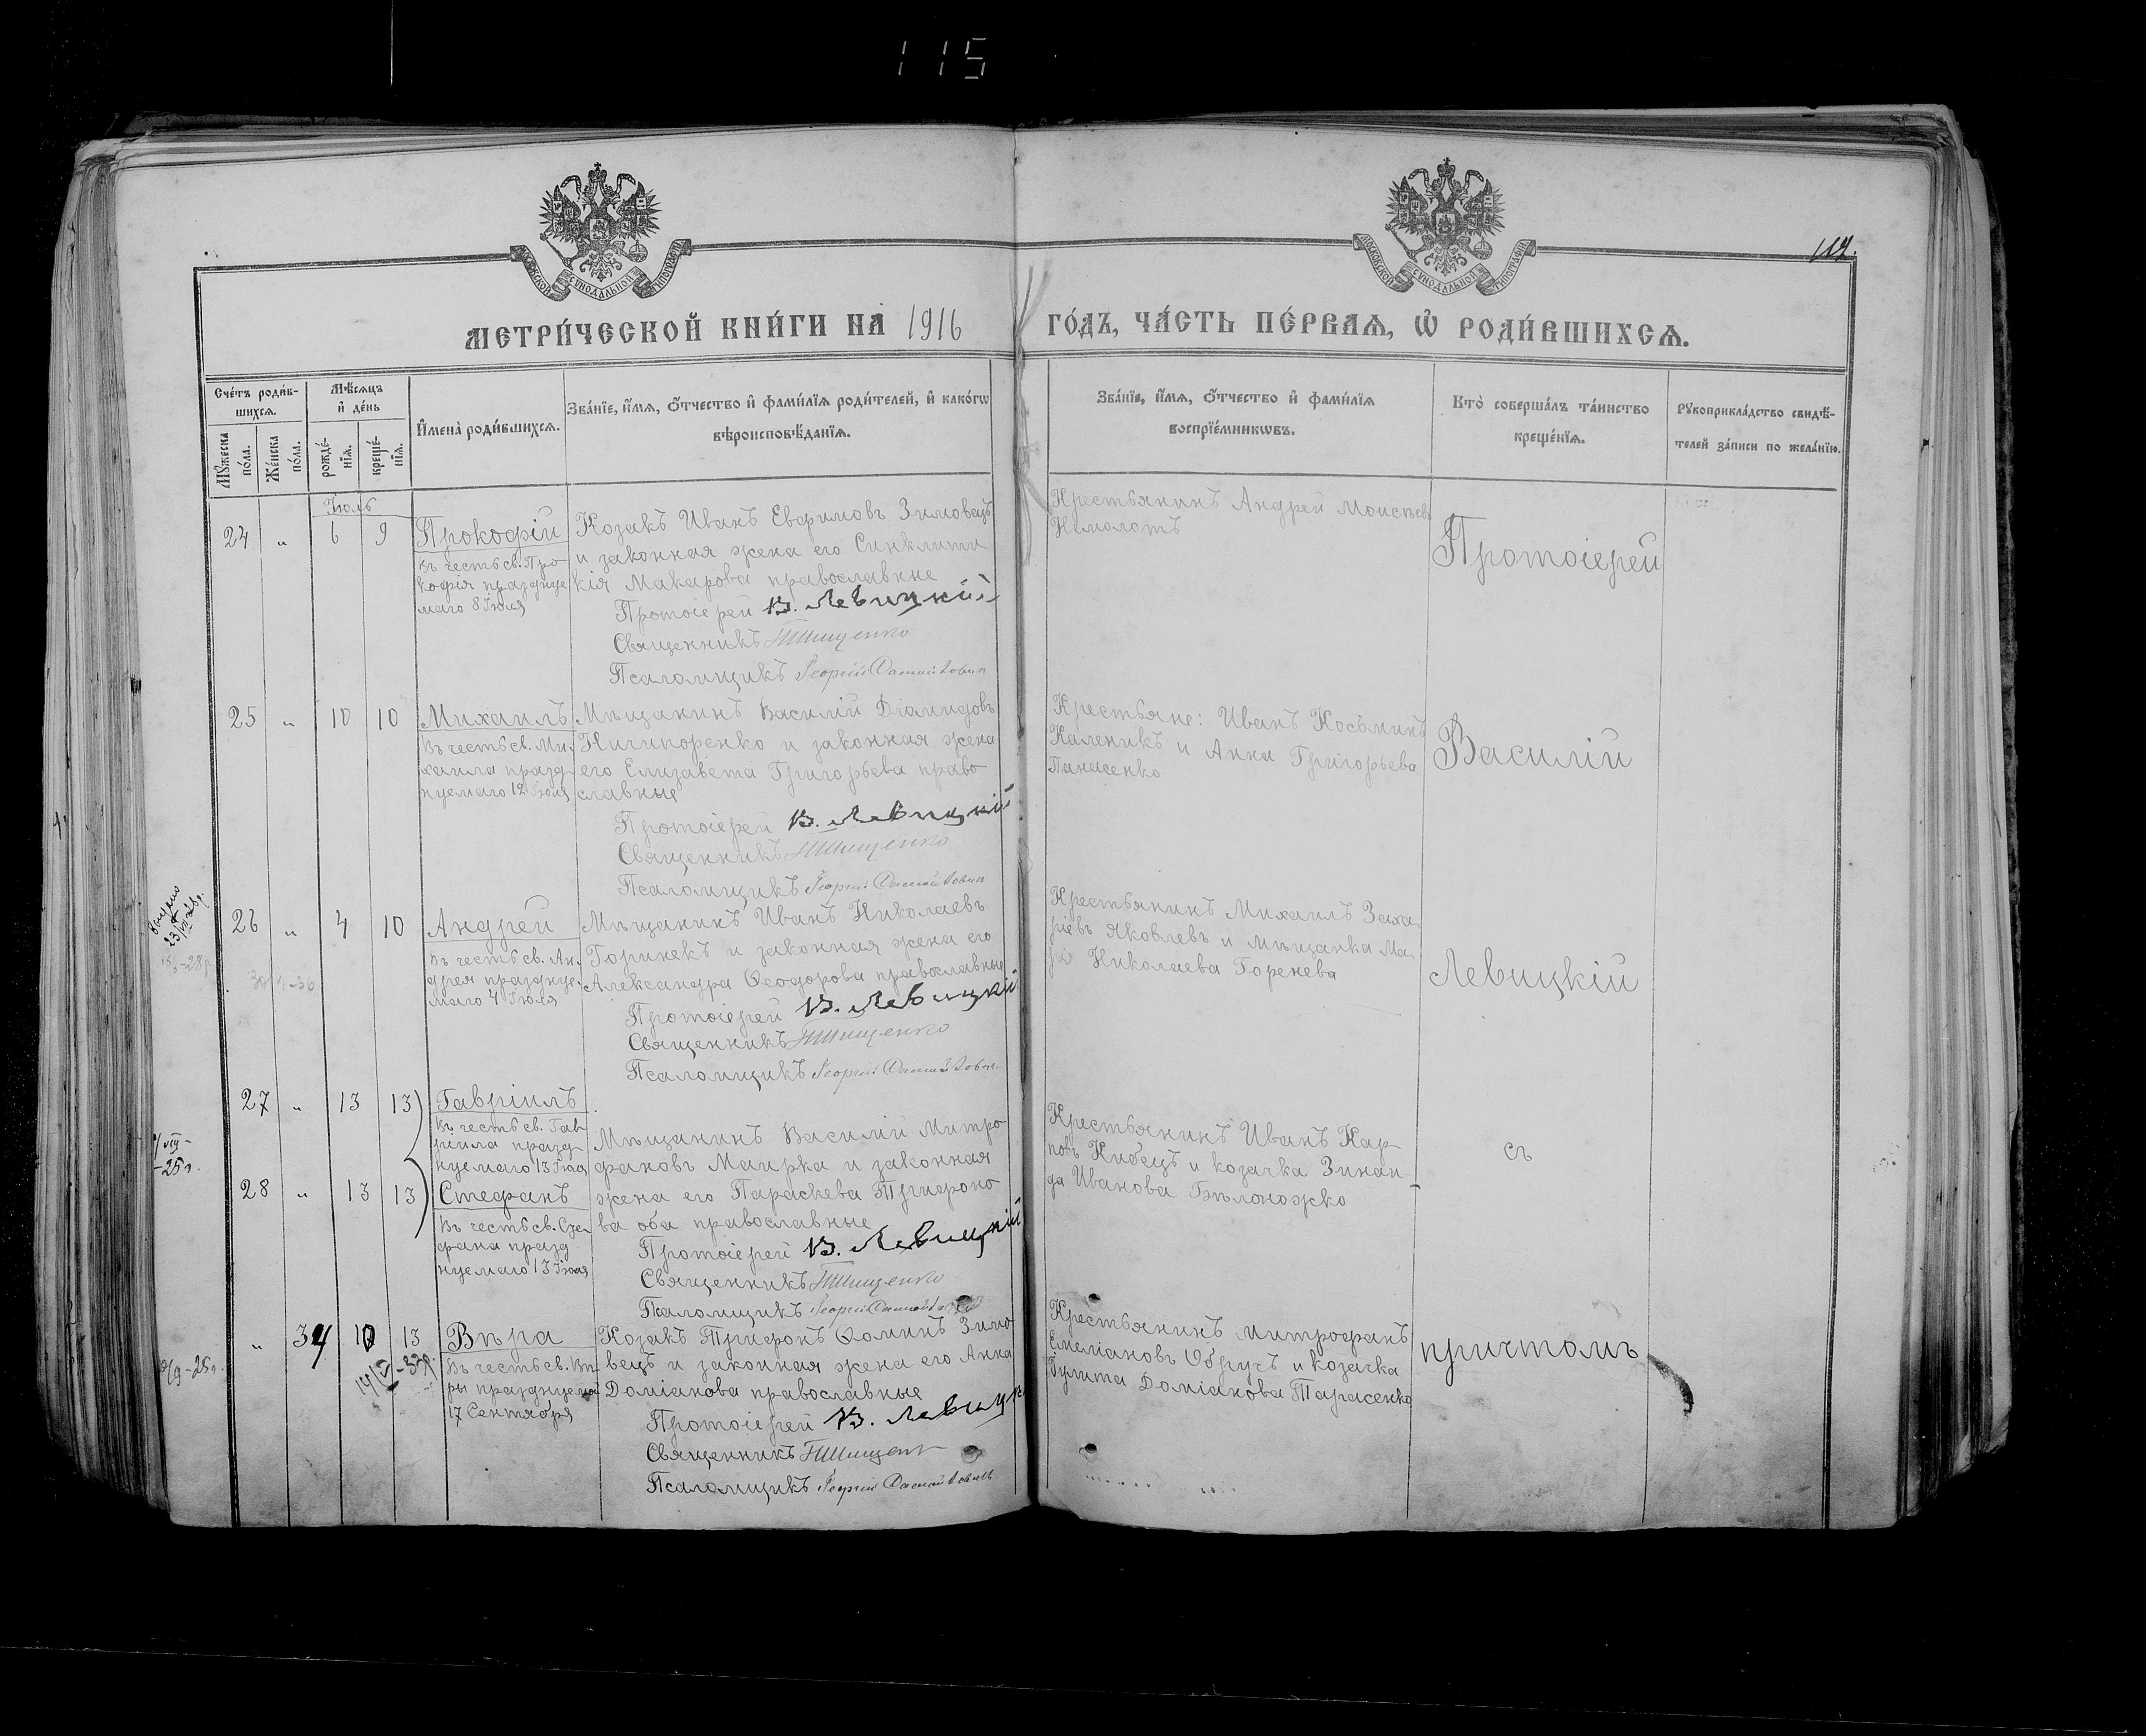 115
МОСКОВСКОЙ СѴНОДАЛЬНОЙ ТИПОГРАФІИ
МОСКОВСКОЙ СѴНОДАЛЬНОЙ ТИПОГРАФІИ
МЕТРИ́ЧЕСКОЙ КНИ́ГИ НА 1916 ГО́ДЪ, ЧА́СТЬ ПЕ́РВАѦ, Ѡ҆ РОДИ́ВШИХСѦ.
Сче́тъ роди́в-
шихсѧ.
Мꙋ́жеска по́ла.
Же́нска по́ла.
Мѣ́сѧцъ
и҆ де́нь
рожде́-
нїѧ.
креще́-
нїѧ.
И҆мена̀ роди́вшихсѧ.
Зва́нїе, и҆́мѧ, ѻ҆́тчество и҆ фами́лїѧ роди́телей, и҆ како́гѡ
вѣроисповѣ́данїѧ.
Зва́нїе, и҆́мѧ, ѻ҆́тчество и҆ фами́лїѧ
воспрїе́мникѡвъ.
Кто̀ соверша́лъ та́инство
креще́нїѧ.
Рꙋкоприкла́дство свидѣ́-
телей за́писи по жела́нїю.
Іюль
24 „ 6 9 Прокофій
Въ честь св. Про-
кофія праздъуе
маго 8 Іюля
Козакъ Иванъ Евфимовъ Зимовецъ
и законная жена его Синклити
кія Макарова православные
Протоіерей В. Левицкій
Священникъ
Псаломщикъ Георгій
Крестьянинъ Андрей Моисѣевъ
Немолотъ
Протоіерей
25 „ 10 10 Михаилъ
Въ честь св. Ми-
хаила празд-
нуемаго 12 Іюля
Мѣщанинъ Василій Діомидовъ
Ничипоренко и законная жена
его Елизавета Григорьева право
славные
Протоіерей В. Левицкій
Священникъ
Псаломщикъ Георгій
Крестьяне: Иванъ Косьминъ
Каленикъ и Анна Григорьева
Панасенко
Василій
26 „ 4 10 Андрей
Въ честь св. Ан-
дрея праздну-
маго 4 Іюля
Мѣщанинъ Иванъ Николаевъ
Горинекъ и законная жена его
Александра Ѳеодорова православные
Протоіерей В. Левицкій
Священникъ
Псаломщикъ Георгій
Крестьянинъ Михаилъ Заха
ріевъ Яковлевъ и мѣщанка Ма-
рія Николаева Горенева
Левицкій
27 „ 13 13 Гавріилъ
Въ честь св. Гав-
ріила празд-
нуемаго 13 Іюля
28 „ 13 13 Стефанъ
Въ честь св. Сте-
фана празд-
нуемаго 13 Іюля
Мѣщанинъ Василій Митро
фановъ Маирка и законная
жена его Параскева Трифоно
ва оба православные
Протоіерей В. Левицкій
Священникъ
Псаломщикъ Георгій
Крестьянинъ Иванъ Кар-
повъ Кибецъ и козачка Зинаи-
да Иванова Бѣлоножко
съ
„ 34 10 13 Вѣра
Въ честь св. Вѣ-
ры празднуемой
17 Сентября
Козакъ Трифонъ Ѳоминъ Зимо
вецъ и законная жена его Анна
Доміанова православные
Протоіерей В. Левицкій
Священникъ
Псаломщикъ Георгій
Крестьянинъ Митрофанъ
Емеліановъ Обручъ и козачка
Гулита Доміанова Тарасенко
причтомъ